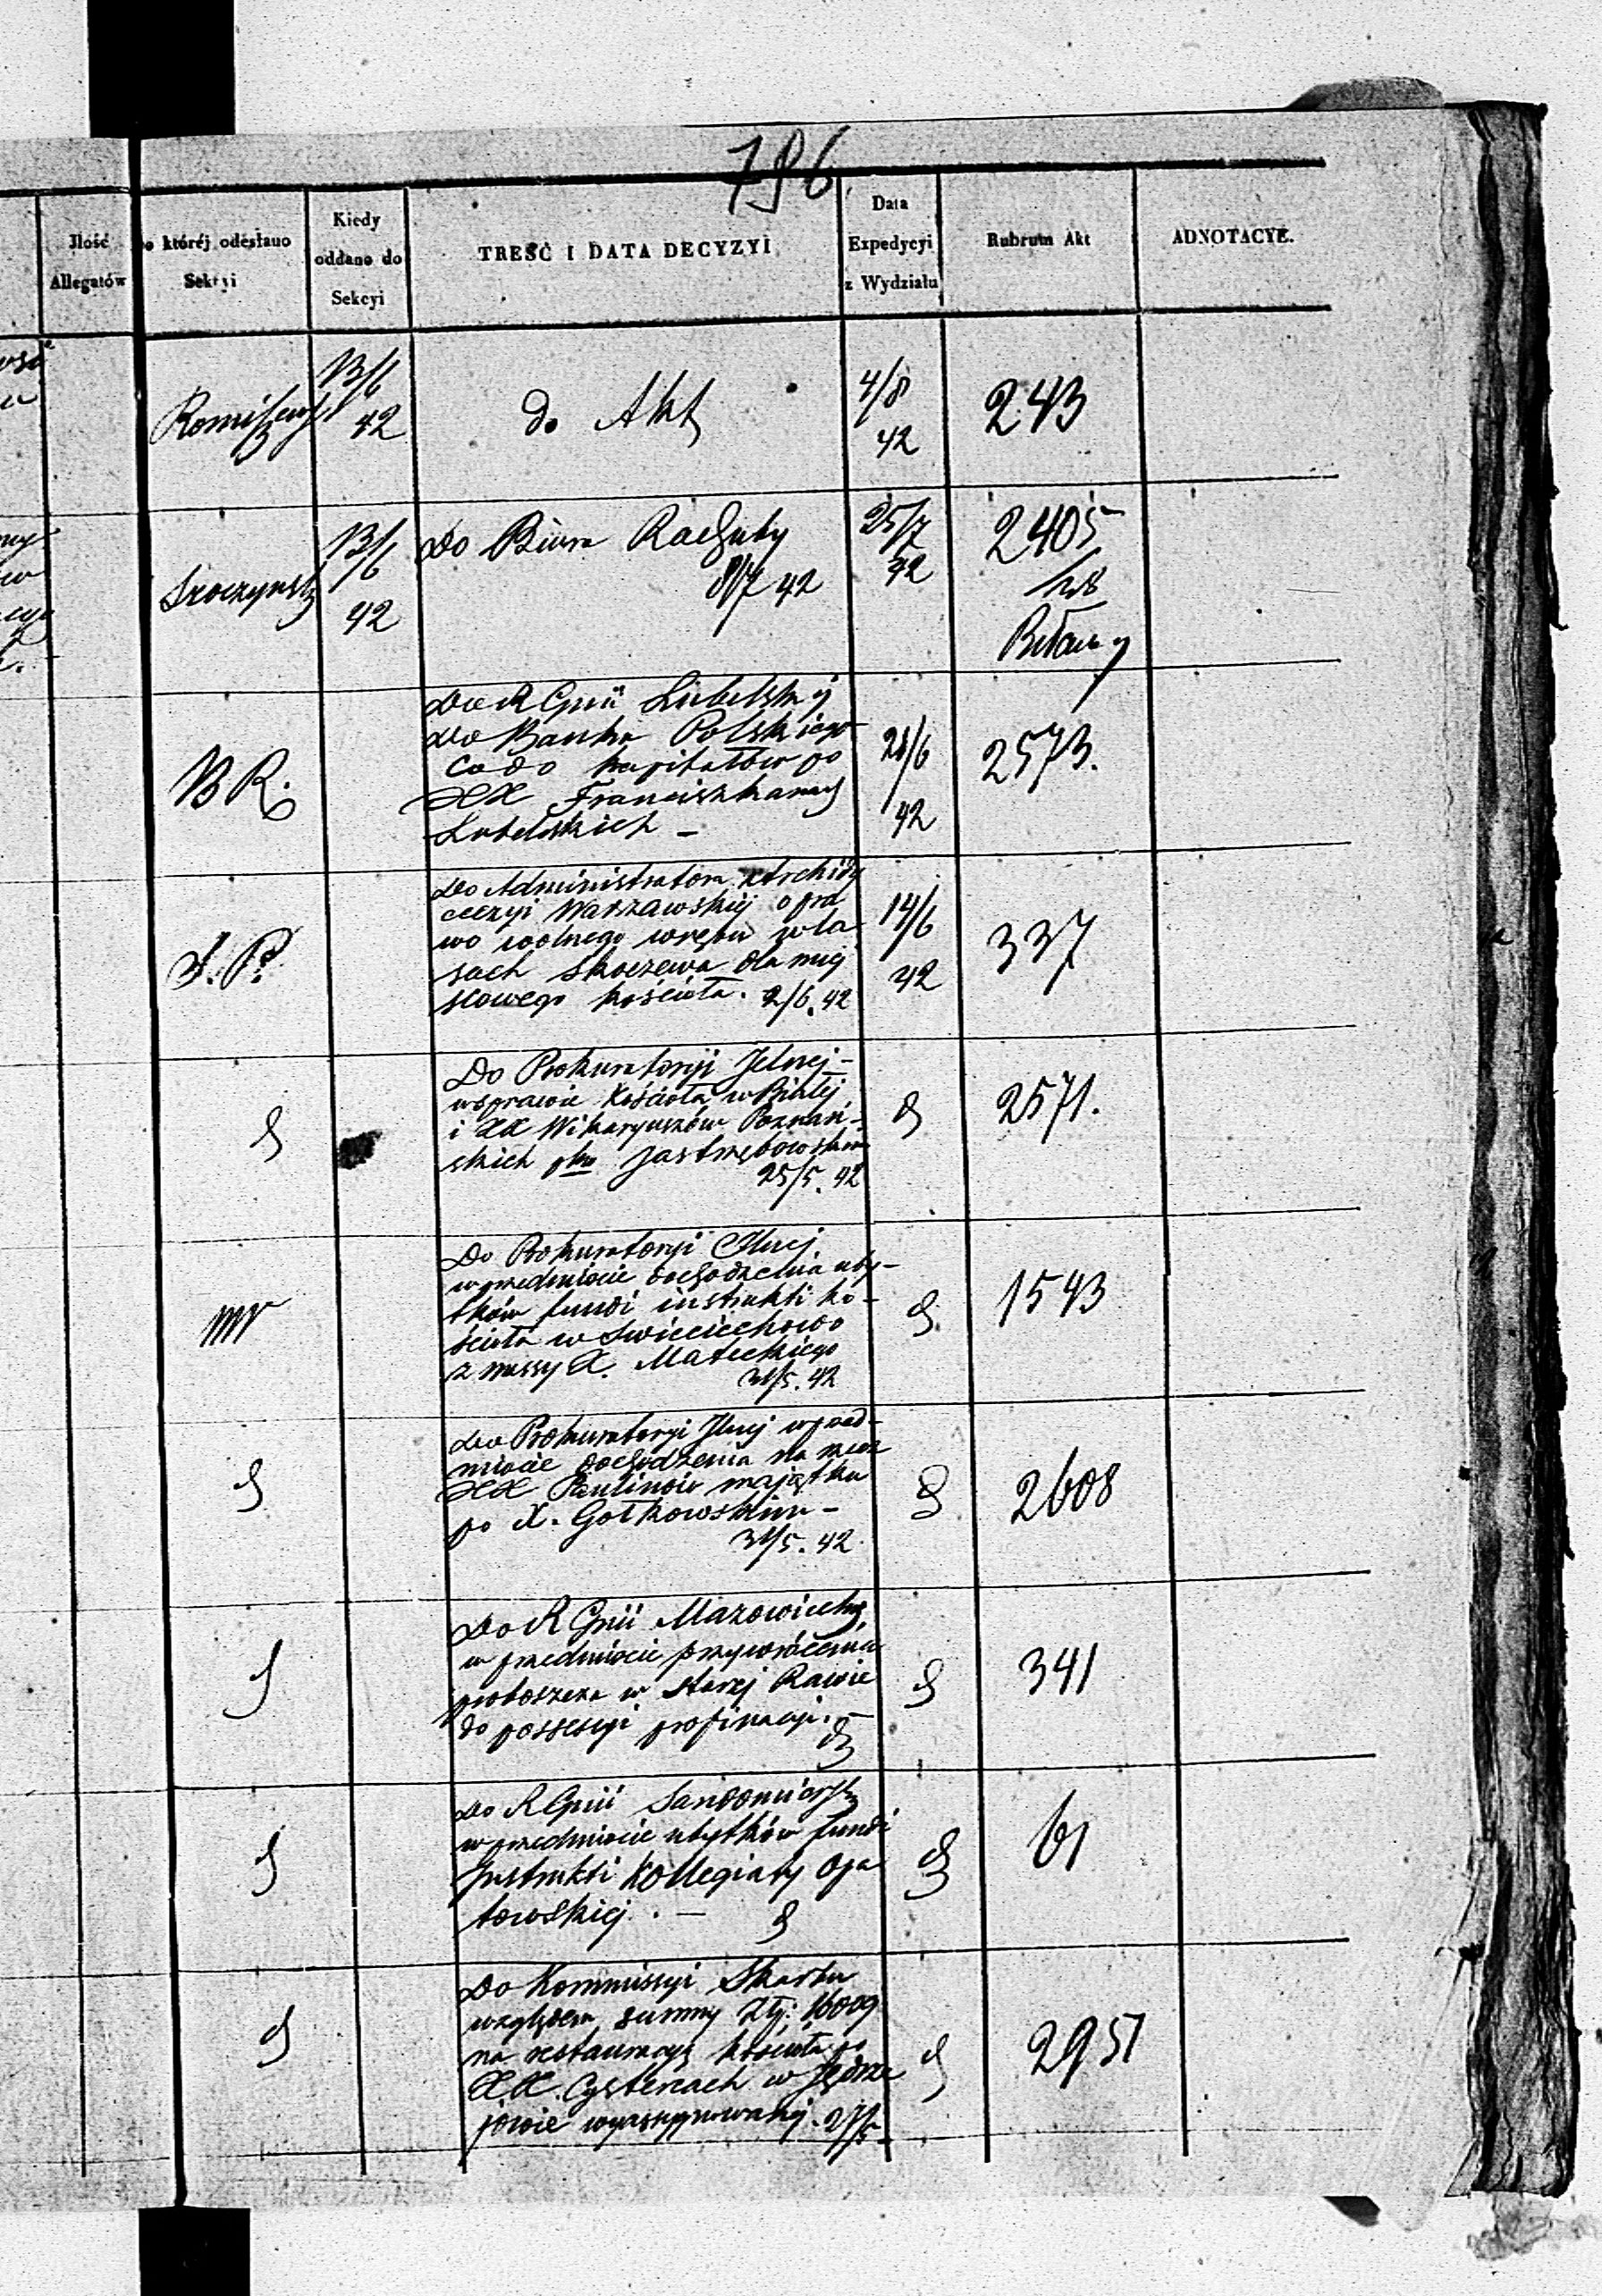 796
Ilość
Allegatów
o któréj odesłano
Sekcyi
Kiedy
oddano do
Sekcyi
TREŚĆ I DATA DECYZYI
Data
Expedycyi
z Wydziału
Rubrum Akt
ADNOTACYE.
13/6
42
do Akt
4/8
42
243
13/6
42
do Biura Rachuby
8/7 42
25/7
42
2405
BR.
do RGnii Lubelskiej
do Banku Polskiego
co do kapitałów po
XX Franciszkanach
Lubelskich –
21/6
42
2573.
S. P.
do Administratora Archidy
ecezyi Warszawskiej o pra
wo wolnego wrębu w la
sach Skoczewa dla miej
scowego kościoła. 2/6. 42
14/6
42
337
Do Prokuratoryi Jlnej –
w sprawie Kościoła w Białej
i XX Wikaryuszów Poznań-
skich pko Jastrzębowskim
25/5. 42
2571.
mr
Do Prokuratoryi Jlnej
w przedmiocie dochodzenia uby-
tków fundi instrukti ko-
ścioła w Swięciechowo
z massy X. Mateckiego
31/5. 42
1543
do Prokuratoryi Jlnej w przed-
miocie dochodzenia na rzecz
XX Paulinów majątku
po X. Gołkowskim –
31/5. 42
2608
Do RGnii Mazowieckiej
w przedmiocie przywrócenia
proboszcza w Starej Rawie
do possessyi propinacyi. –
341
do RGnii Sandomiersk
w przedmiocie ubytków fundi
Instrukti Kollegiaty Opa
towskiej. –
61
Do Kommissyi Skarbu
względem summy Złp: 16009
na restauracyę kościoła po
XX. Cystersach w Jędrze
jowie wyassygnowanej. 27/5
2951